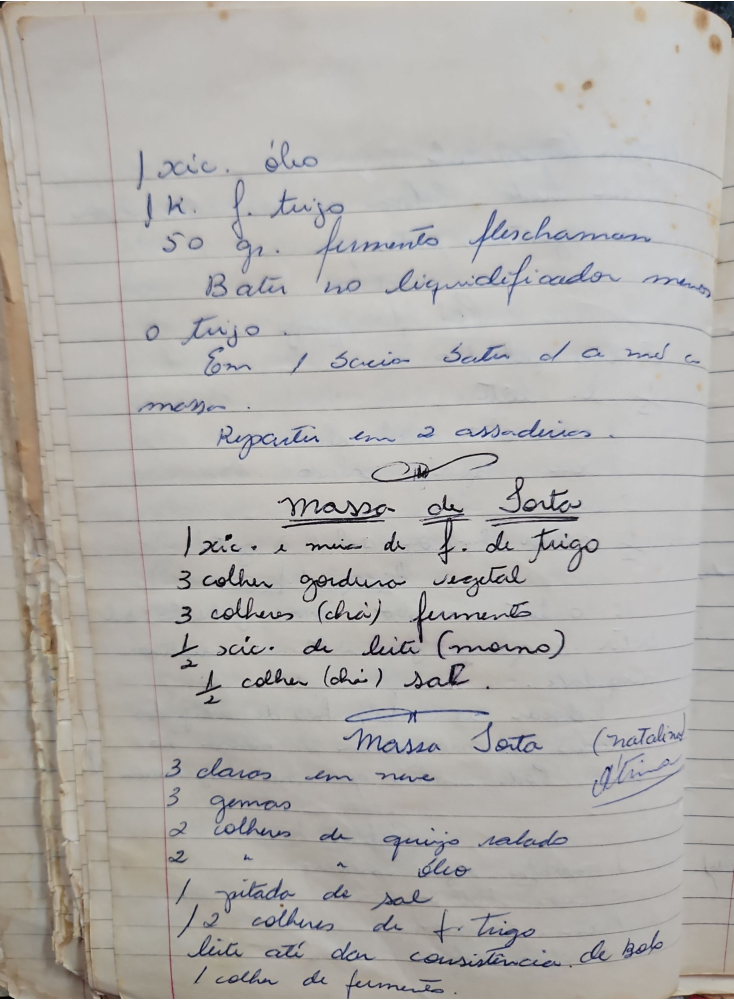 1 xíc. óleo
1 K. f. trigo
50 gr. fermento fleschamam
Bater no liquidificador menos
o trigo.
Em 1 bacia bater d a
massa.
Repartir em 2 assadeiras.
Massa de Torta
1 xíc. e meia de f. de trigo
3 colher gordura vegetal
3 colheres (chá) fermento
1/2 xíc. de leite (morno)
1/2 colher (chá) sal.
Massa Torta (natalina)
Ótima
3 claras em neve
3 gemas
2 colheres de queijo ralado
2 " " óleo
1 pitada de sal
12 colheres de f. trigo
leite até dar consistência de Bolo
1 colher de fermento.